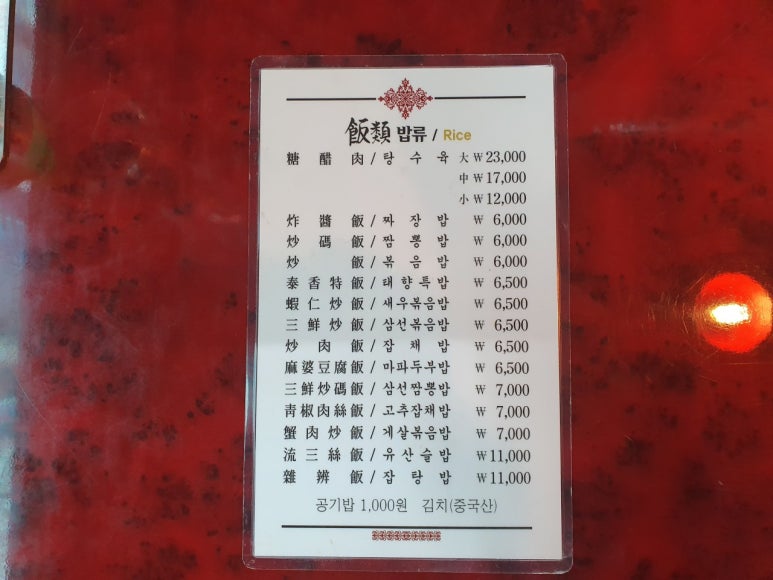 飯類 밥류 / Rice
糖醋肉 / 탕수육 大 ₩ 23,000
中 ₩ 17,000
小 ₩ 12,000
炸醬飯 / 짜장밥 ₩ 6,000
炒碼飯 / 짬뽕밥 ₩ 6,000
炒飯 / 볶음밥 ₩ 6,000
泰香特飯 / 태향특밥 ₩ 6,500
蝦仁炒飯 / 새우볶음밥 ₩ 6,500
三鮮炒飯 / 삼선볶음밥 ₩ 6,500
炒肉飯 / 잡채밥 ₩ 6,500
麻婆豆腐飯 / 마파두부밥 ₩ 6,500
三鮮炒碼飯 / 삼선짬뽕밥 ₩ 7,000
靑椒肉絲飯 / 고추잡채밥 ₩ 7,000
蟹肉炒飯 / 게살볶음밥 ₩ 7,000
流三絲飯 / 유산슬밥 ₩ 11,000
雜辨飯 / 잡탕밥 ₩ 11,000
공기밥 1,000원 김치(중국산)